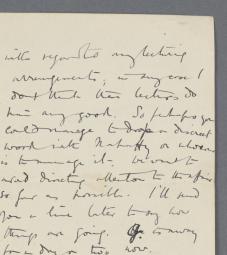 with regard to any lecturing
arrangements; in any case I
don't think these lectures do
him any good. So perhaps you
could manage to drop a discreet
word with or whoever
is to manage it. We want to
avoid directing attention to the affair
so far as possible. I'll send
you a line later to say how
things are going. is away
for a day or two now.